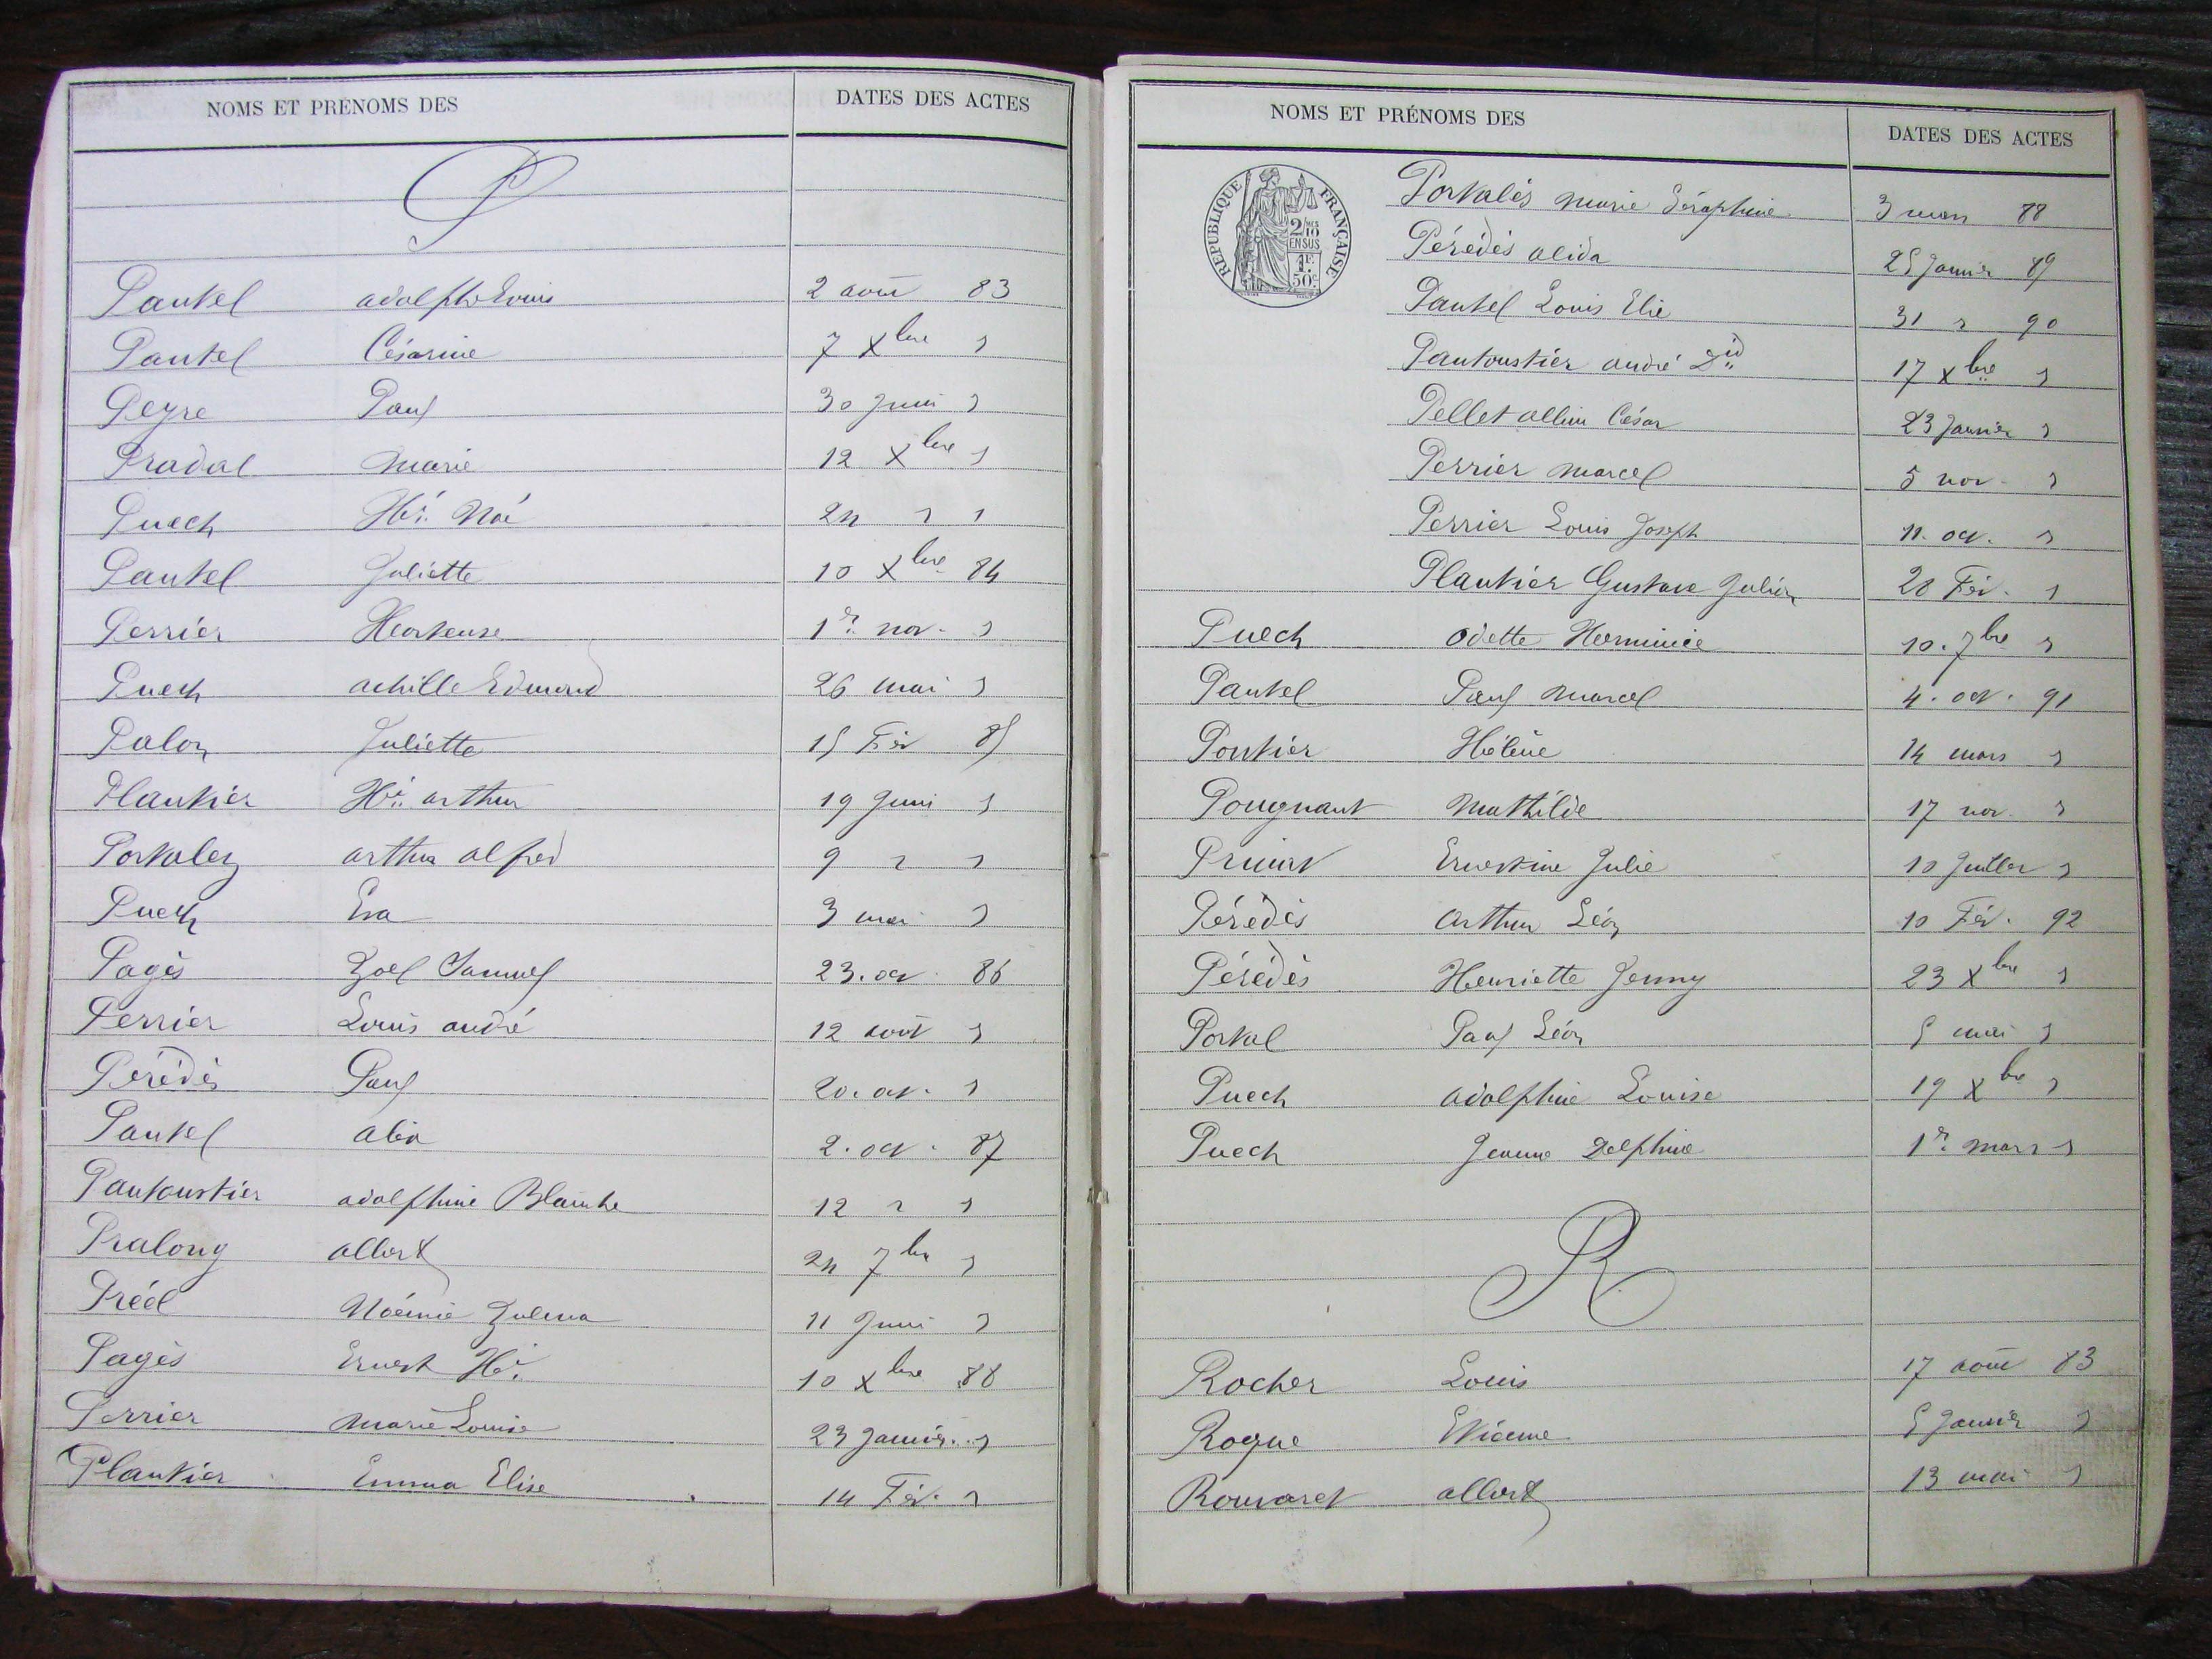 NOMS ET PRÉNOMS DES DATES DES ACTES
P
Pantel adolphe Louis 2 aout 83
Pantel Césarine 7 Xbre "
Peyre Paul 30 Juin "
Pradal Marie 12 Xbre "
Puech Hri Noé 24 " "
Pantel Juliette 10 Xbre 84
Perrier Hortense 1er nov. "
Puech achille Edmond 26 mai "
Palon Juliette 15 Fév 85
Plantier Hri arthur 19 Juin "
Portalez arthur alfred 9 " "
Puech Eva 3 mai "
Pagès Zoel Samuel 23. oct. 86
Perrier Louis andré 12 août "
Pérédès Paul 20. oct. "
Pantel 2. oct. 87
Pantoustier adolphine Blanche 12 " "
Pralong albert 24 7bre "
Préel Noémie Zulma 11 Juin "
Pagès Ernest Hri 10 Xbre 88
Perrier marie Louise 23 Janvier. "
Plantier Emma Elise 14 Fév. "
NOMS ET PRÉNOMS DES DATES DES ACTES
RÉPUBLIQUE FRANÇAISE
2/10 MES
EN SUS
1F.
50c
Portalès marie Séraphine 3 mars 88
Pérédès alida 25 Janvier 89
Pantel Louis Elie 31 " 90
Pantoustier andré Did 17 Xbre "
Pellet albin César 23 Janvier "
Perrier marcel 5 nov. "
Perrier Louis Joseph 11. oct. "
Plantier Gustave Julien 28 Fév. "
Puech odette Herminie 10. 7bre "
Pantel Paul marcel 4. oct. 91
Pontier Hélène 14 mars "
Pougnant Mathilde 17 nov. "
Ernestine Julie 10 Juillet "
Pérédès arthur Léon 10 Fév. 92
Pérédès Henriette Jenny 23 Xbre "
Portal Paul Léon 5 mai "
Puech adolphine Louise 19 Xbre "
Puech Jeanne Delphine 1er mars "
R
Rocher Louis 17 aout 83
Roque Etienne 5 Janvier "
Rouvaret albert 13 mai "